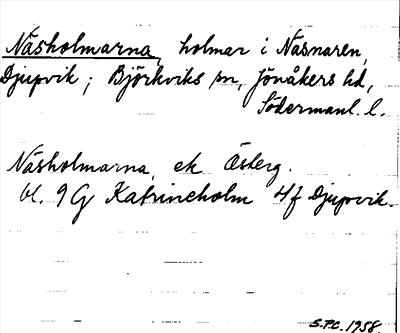 Näsholmarna, holmar i Näsnaren,
Djupvik; Björkviks sn, Jönåkers hd,
Södermanl. l.
Näsholmarna, ek Österg.
bl. 9G Katrineholm 4f Djupvik.
S.P.C. 1958.